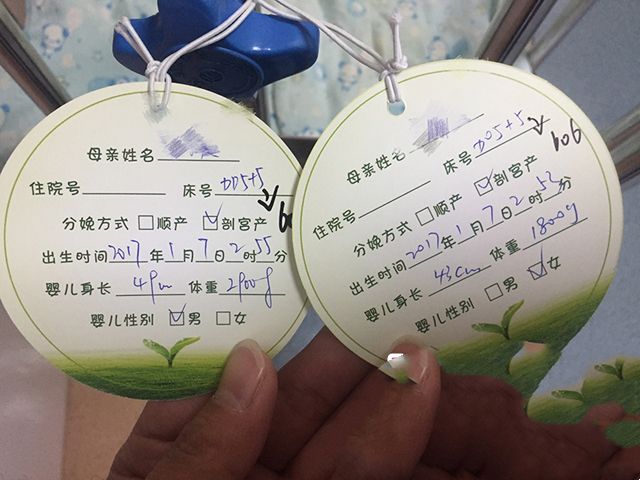 母亲姓名
住院号 床号 DD5+5
分娩方式 顺产 剖宫产
出生时间 2017 年 1 月 7 日 2 时 55 分
婴儿身长 体重 2900g
婴儿性别 男 女
母亲姓名
住院号 床号 DD5+5
606
分娩方式 顺产 剖宫产
出生时间 2017 年 1 月 7 日 2 时 52 分
婴儿身长 43cm 体重 1800g
婴儿性别 男 女